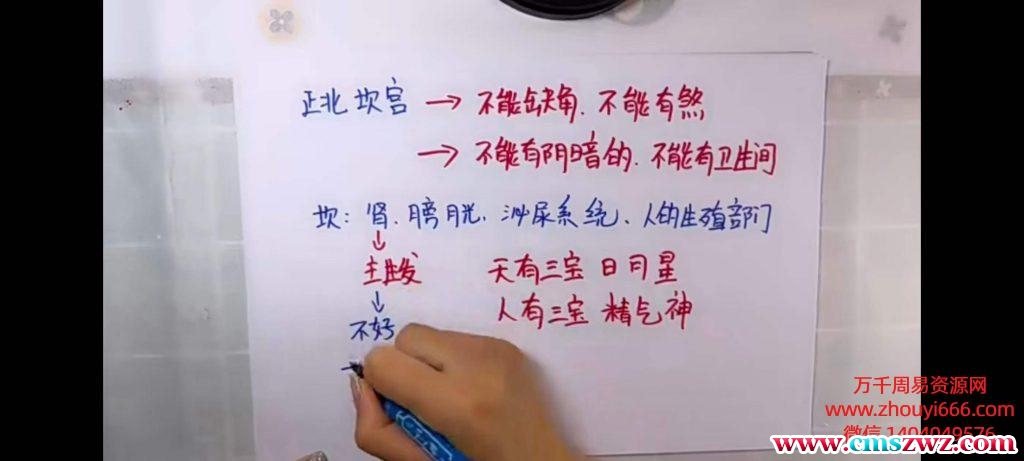 正北坎宫 → 不能缺角、不能有煞
→ 不能有阴暗的、不能有卫生间
坎：肾、膀胱、泌尿系统、人的生殖部门
↓
主生发 天有三宝 日月星
↓ 人有三宝 精气神
不好
万千周易资源网
www.zhouyi666.com
微信 1404049576
www.cmszwz.com